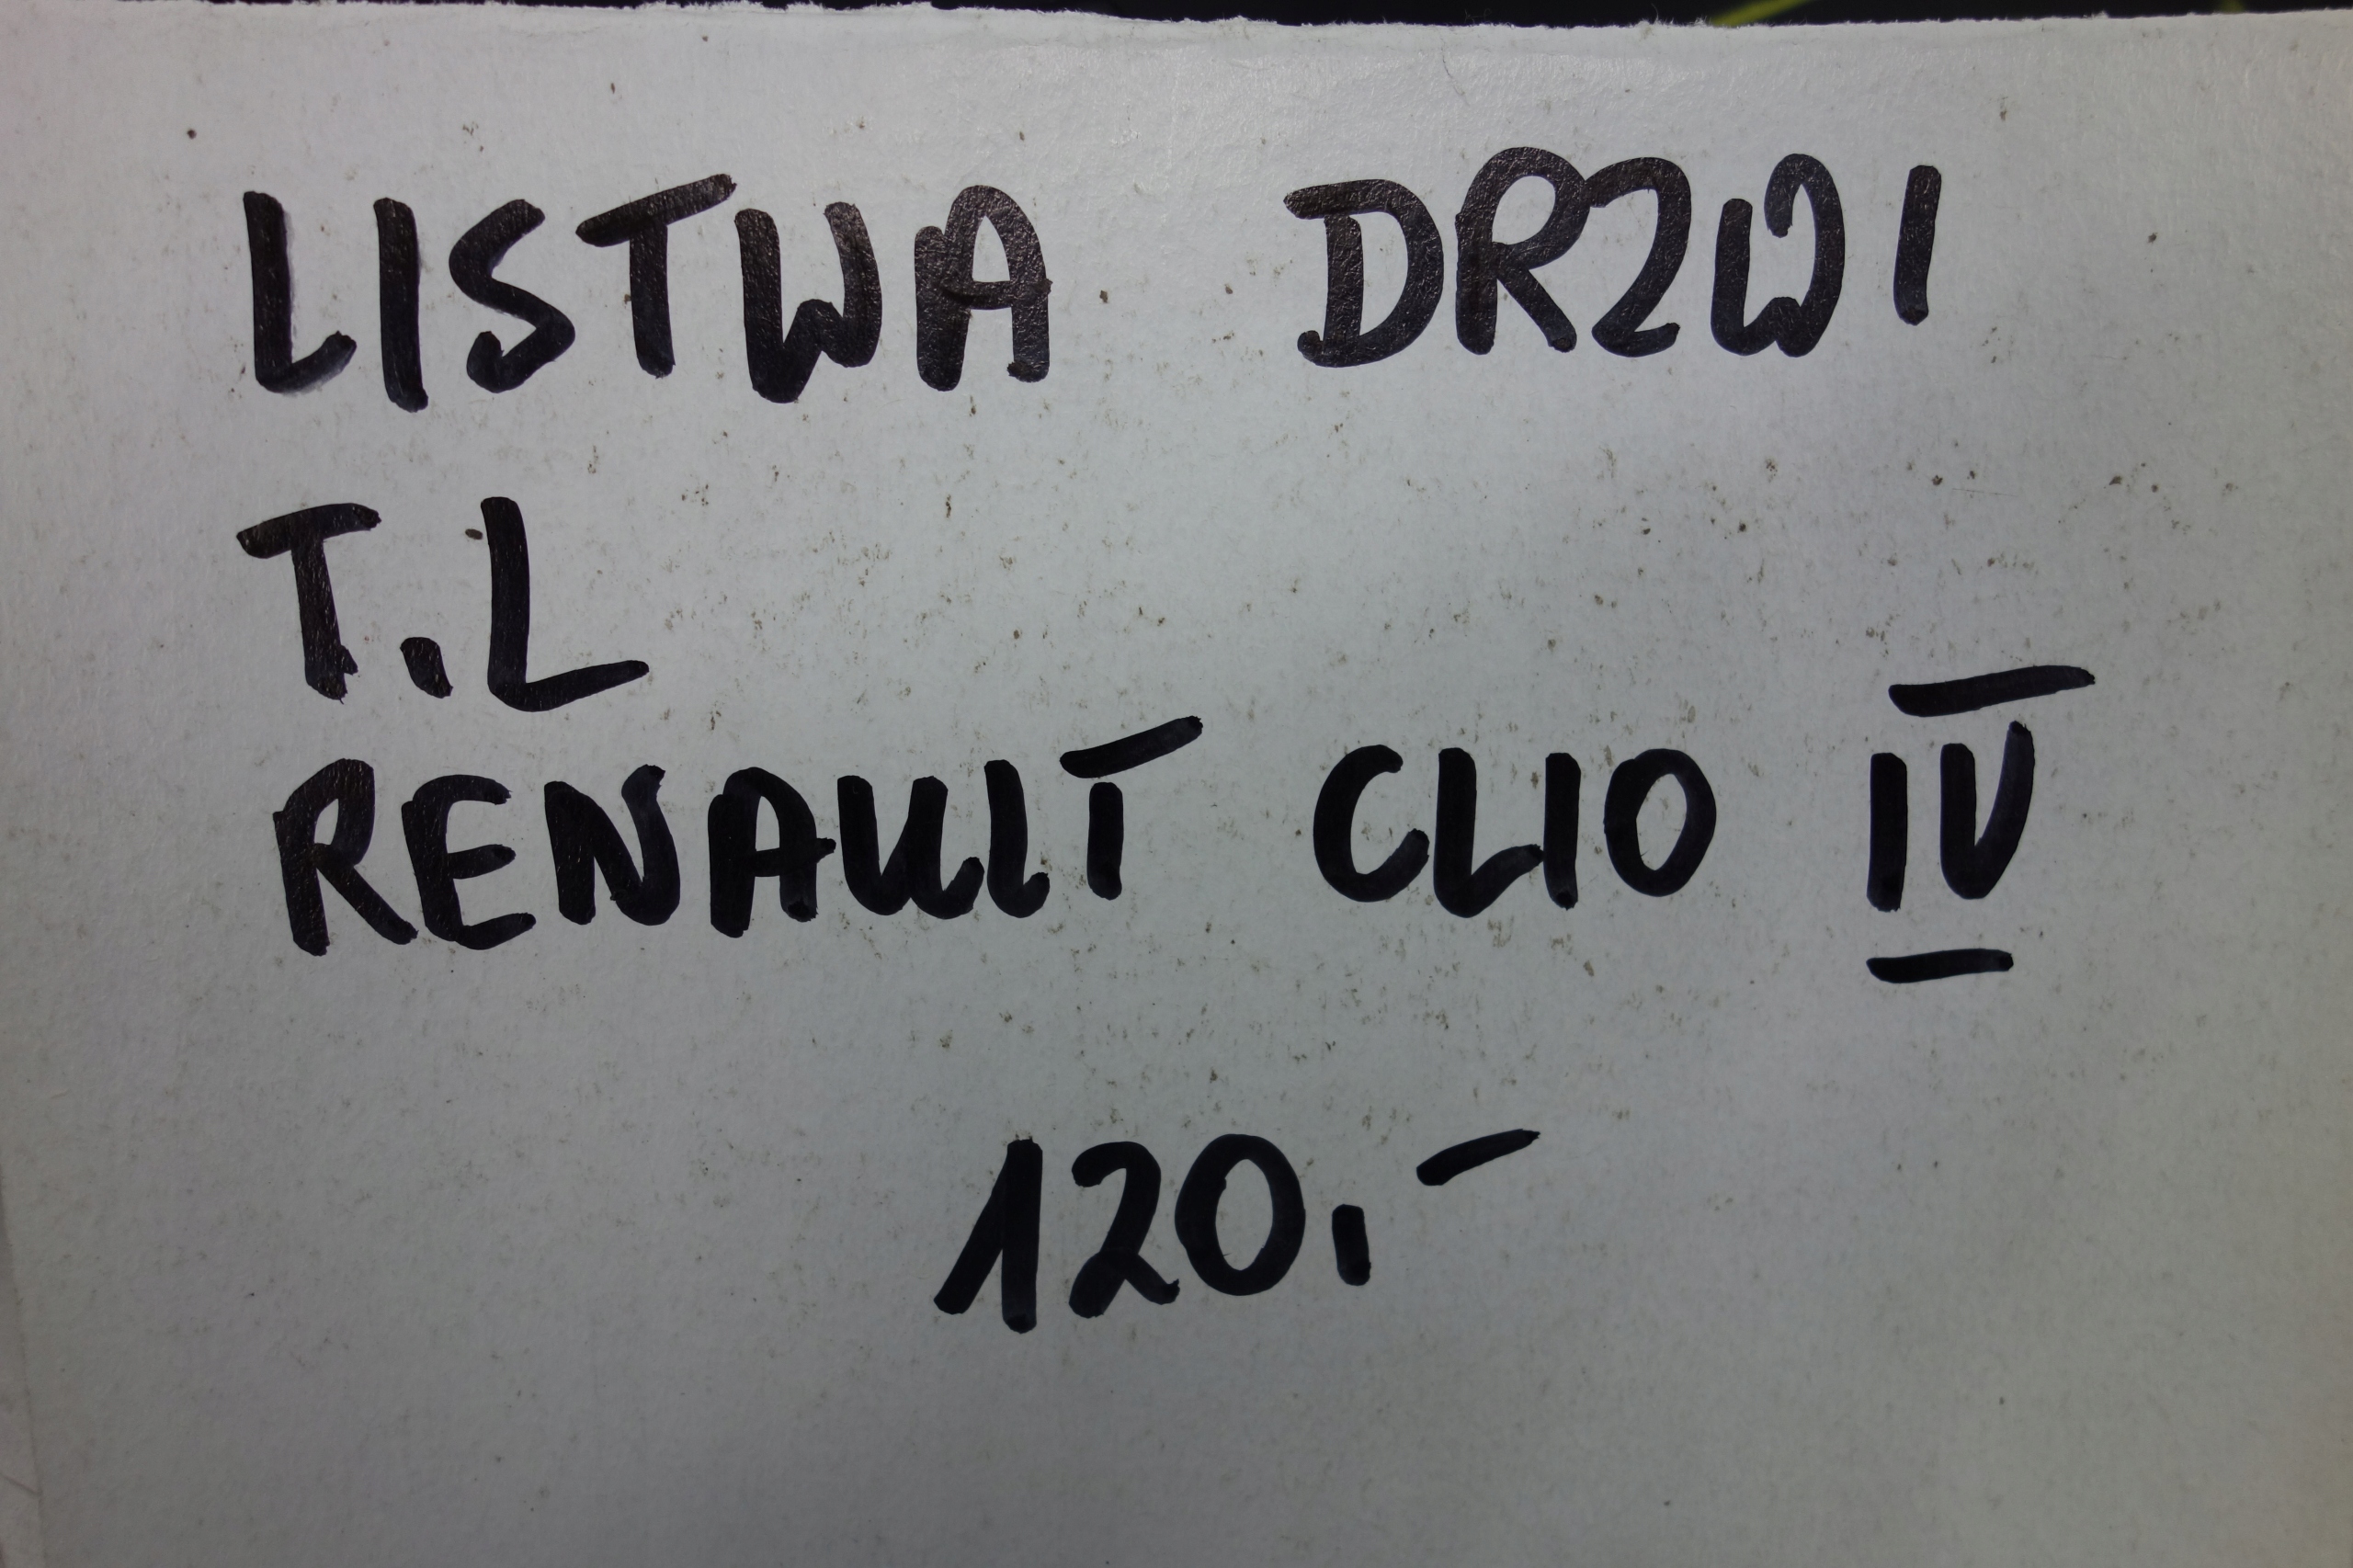 LISTWA DRZWI
T.L
RENAULT CLIO IV
120.-